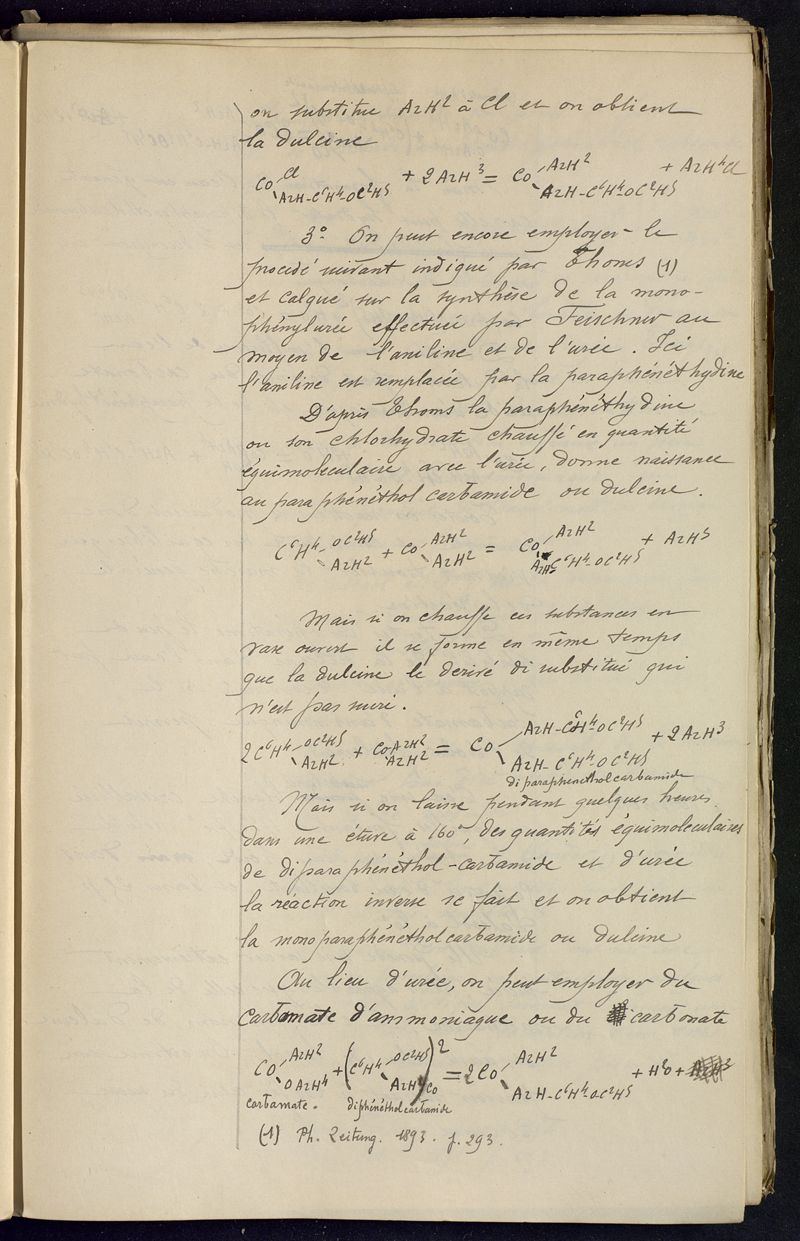 on substitue AzH² à Cl et on obtient
la dulcine
Co Cl AzH-C⁶H⁴-OC²H⁵ + 2AzH³ = Co AzH² AzH-C⁶H⁴-OC²H⁵ + AzH⁴Cl
3º On peut encore employer le
procédé suivant indiqué par Thoms (1)
et calqué sur la synthèse de la mono-
phénylurée effectuée par Feischner au
moyen de l'aniline et de l'urée. Ici
l'aniline est remplacée par la paraphénéthydine
D'après Thoms la paraphénéthydine
ou son chlorhydrate chauffé en quantité
équimoleculaire avec l'urée, donne naissance
au paraphénéthol carbamide ou dulcine.
C⁶H⁴ OC²H⁵ AzH² + Co AzH² AzH² = Co AzH² AzH-C⁶H⁴-OC²H⁵ + AzH³
Mais si on chauffe ces substances en
vase ouvert il se forme en même temps
que la dulcine le derivé di substitué qui
n'est pas sucré.
2C⁶H⁴ OC²H⁵ AzH² + Co AzH² AzH² = Co AzH-C⁶H⁴-OC²H⁵ AzH-C⁶H⁴-OC²H⁵ + 2AzH³
diparaphenetholcarbamide
Mais si on laisse pendant quelques heures
dans une étuve à 160°, des quantités équimoleculaires
de diparaphénéthol-carbamide et d'urée
la réaction inverse se fait et on obtient
la monoparaphénéthol carbamide ou dulcine
Au lieu d'urée, on peut employer du
carbamate d'ammoniaque ou du carbonate
Co AzH² OAzH⁴ + (C⁶H⁴ OC²H⁵ AzH)² Co = 2Co AzH² AzH-C⁶H⁴-OC²H⁵ + H²O +
carbamate. diphénéthol carbamide
(1) Ph. Zeitung. 1893. p. 293.